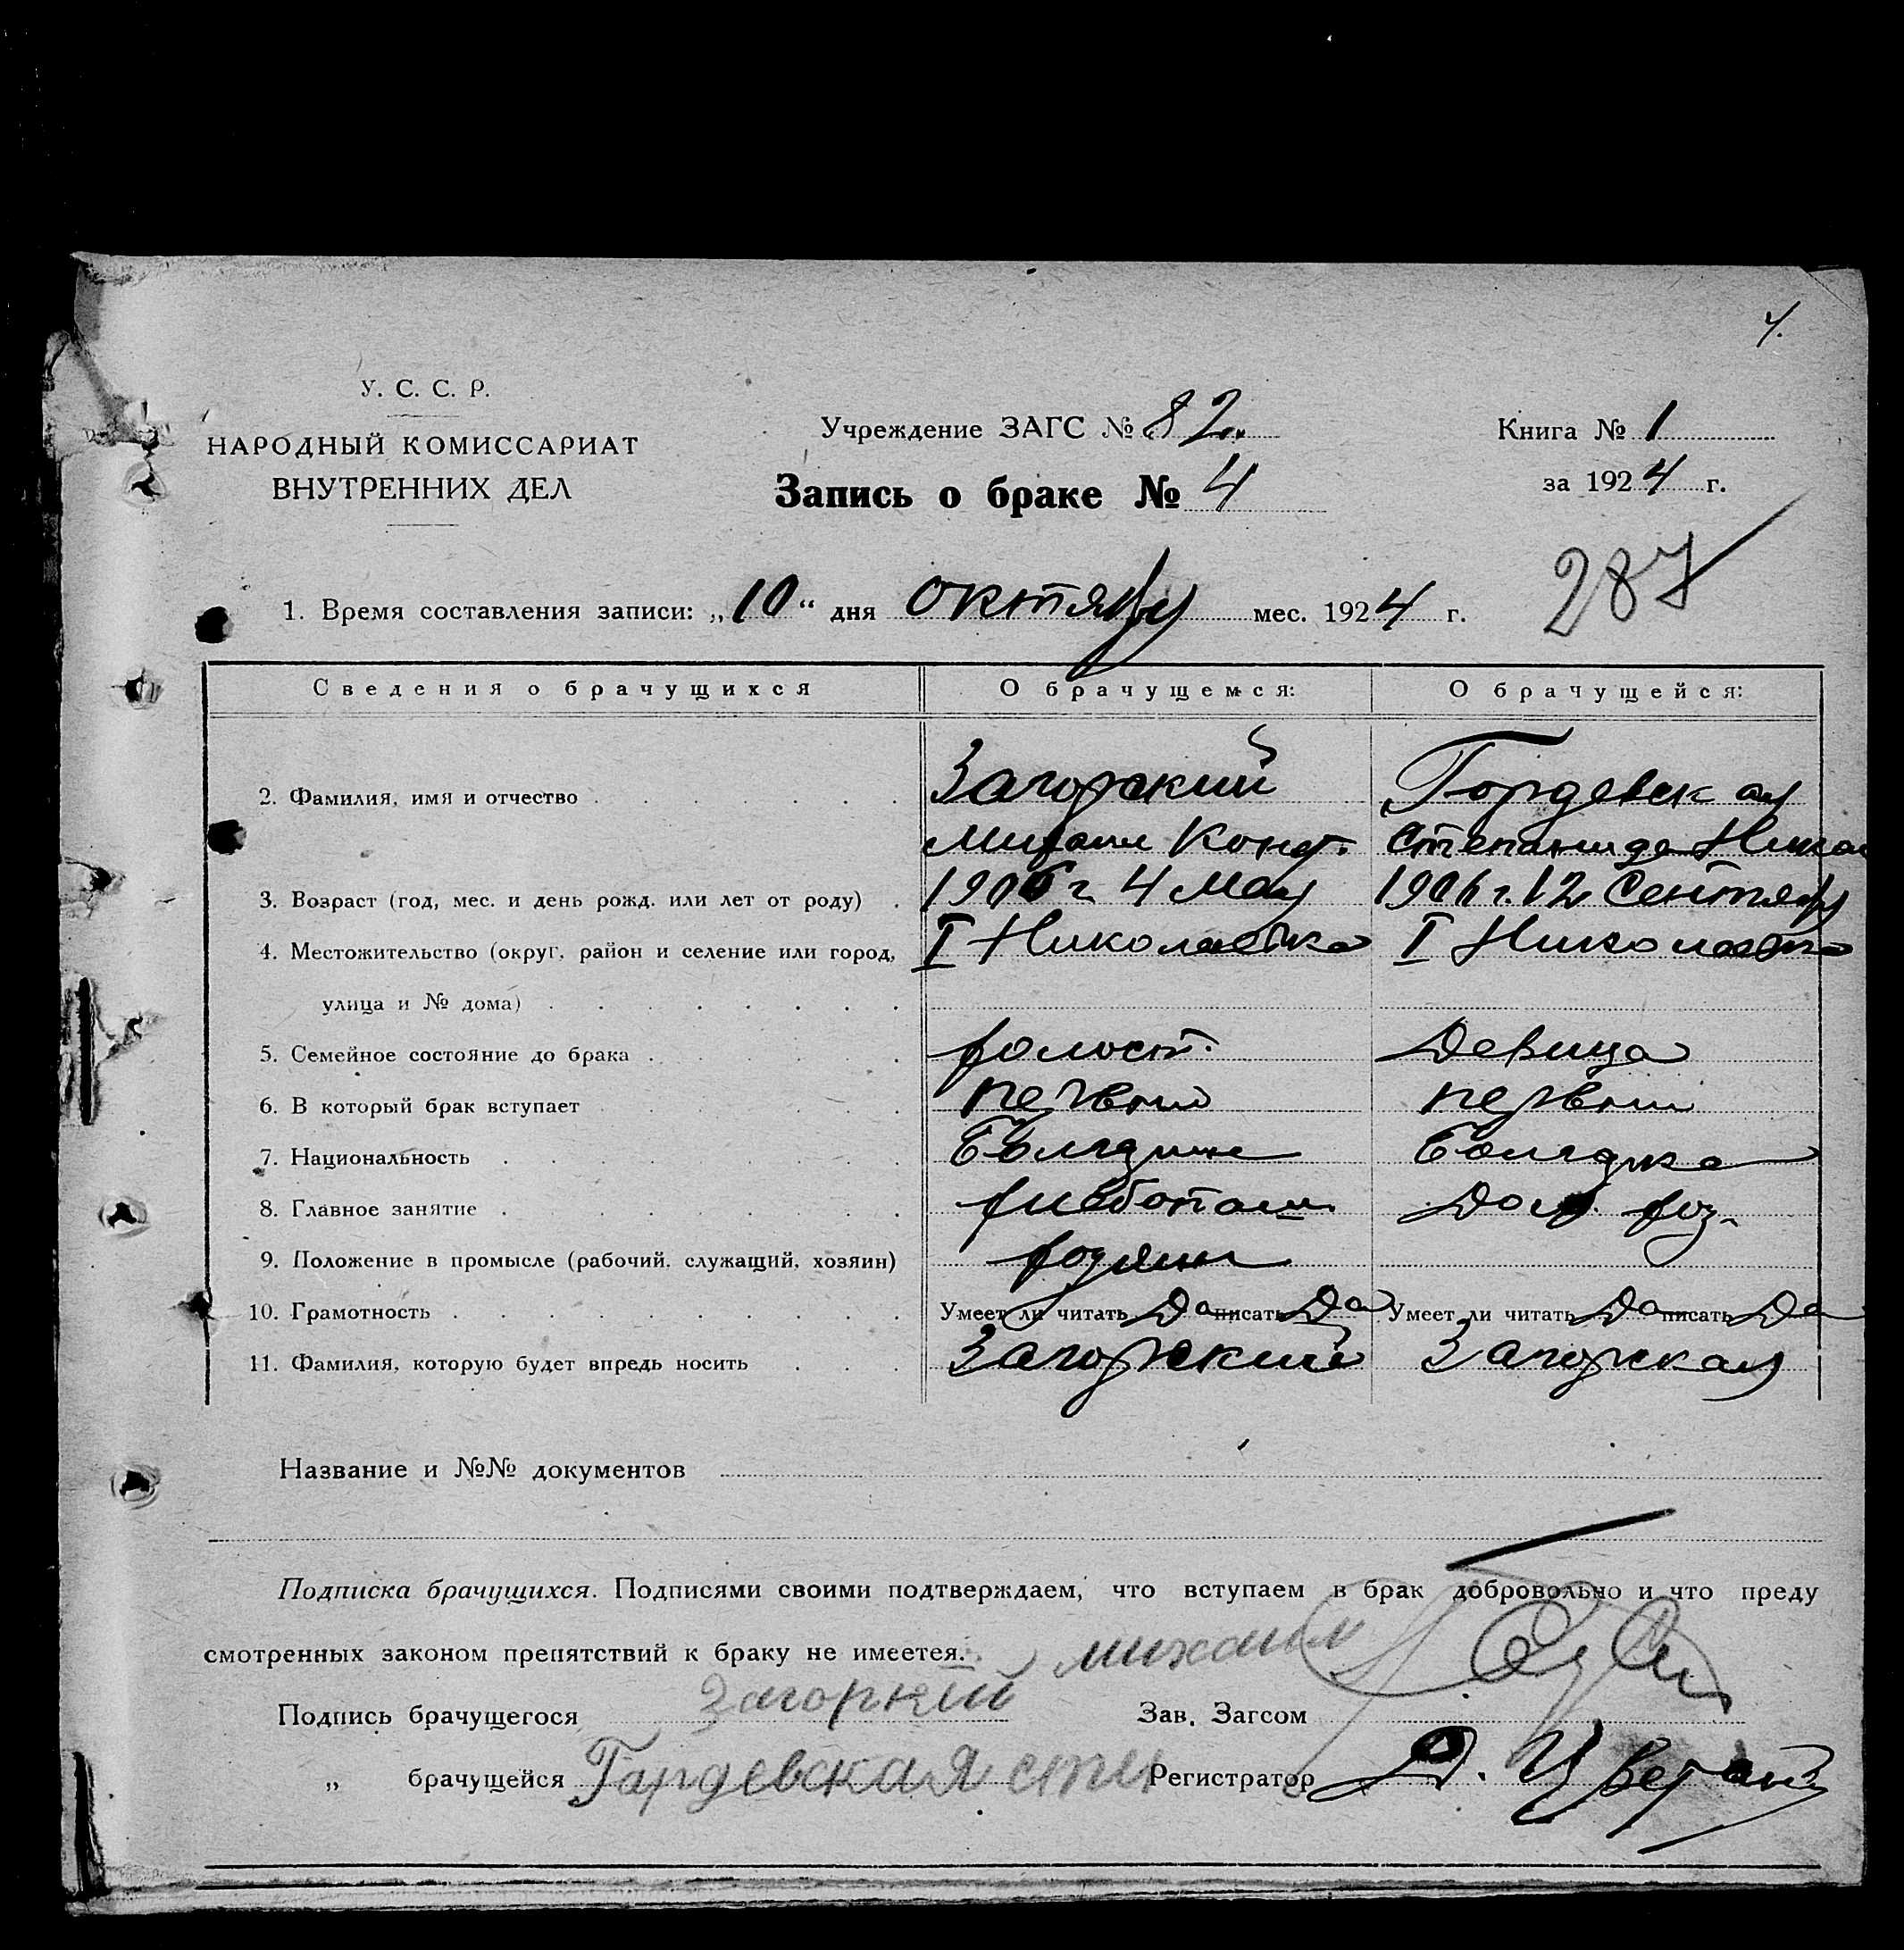 4.
У. С. С. Р.
НАРОДНЫЙ КОМИССАРИАТ
ВНУТРЕННИХ ДЕЛ
Учреждение ЗАГС № 82
Запись о браке № 4
Книга № 1
за 1924 г.
287
1. Время составления записи: „10“ дня октября мес. 1924 г.
Сведения о брачущихся О брачущемся: О брачущейся:
2. Фамилия, имя и отчество Загорский Гордевская
Михаил Конст. Степанида Никол
3. Возраст (год, мес. и день рожд. или лет от роду) 1906 г. 4 мая 1906 г. 12 Сентября
4. Местожительство (округ, район и селение или город, I Николаевка I Николаевка
улица и № дома)
5. Семейное состояние до брака холост. Девица
6. В который брак вступает первый первый
7. Национальность Болгарин Болгарка
8. Главное занятие хлебопаш. Дом. хоз.
9. Положение в промысле (рабочий, служащий, хозяин) хозяин
10. Грамотность Умеет ли читать Да писать Да Умеет ли читать Да писать Да
11. Фамилия, которую будет впредь носить Загорский Загорская
Название и №№ документов
Подписка брачущихся. Подписями своими подтверждаем, что вступаем в брак добровольно и что преду
смотренных законом препятствий к браку не имеетея.
михаил
Подпись брачущегося Загоркий Зав. Загсом
„ брачущейся Гардевская сте Регистратор Д.